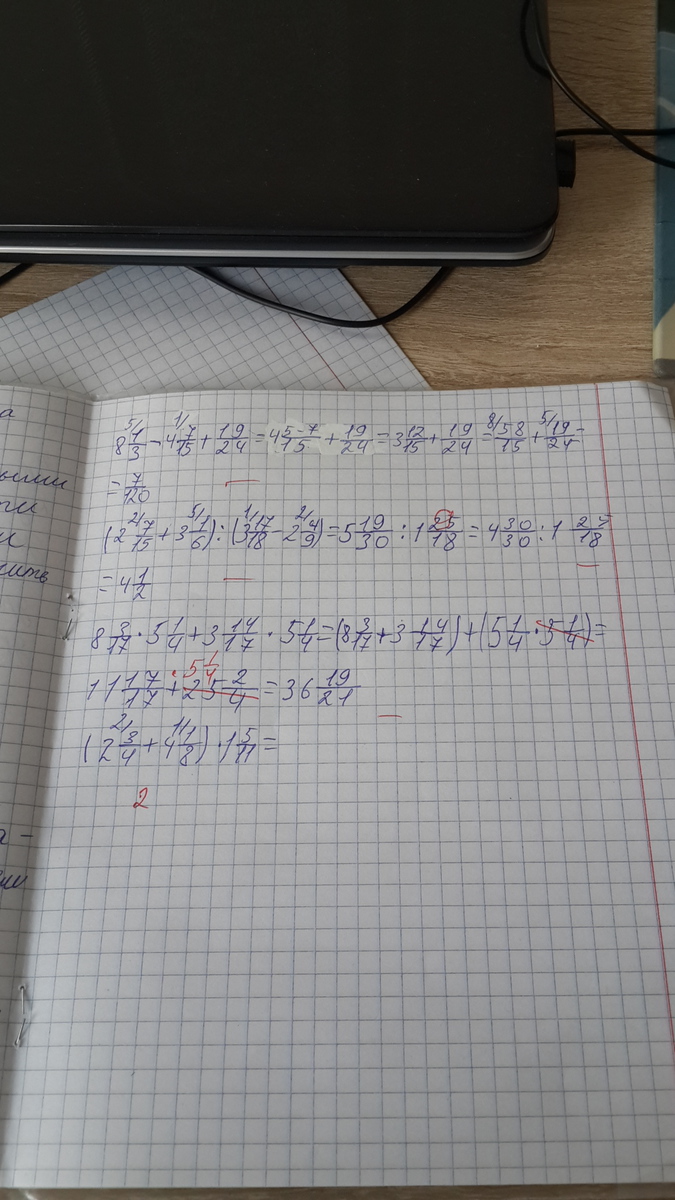 8 1/3 - 4 7/15 + 19/24 = 4 5-7/15 + 19/24 = 3 12/15 + 19/24 = 58/15 + 19/24 -
= 7/120
(2 7/15 + 3 1/6) : (3 17/18 - 2 4/9) = 5 19/30 : 1 25/18 = 4 30/30 : 1
= 4 1/2
8 3/17 · 5 1/4 + 3 14/17 · 5 1/4 = (8 3/17 + 3 14/17) + (5 1/4 · 5 1/4) =
· 5 1/4
11 17/17 + 25 2/4 = 36 19/21
(2 3/4 + 4 1/8) · 1 5/11 =
2